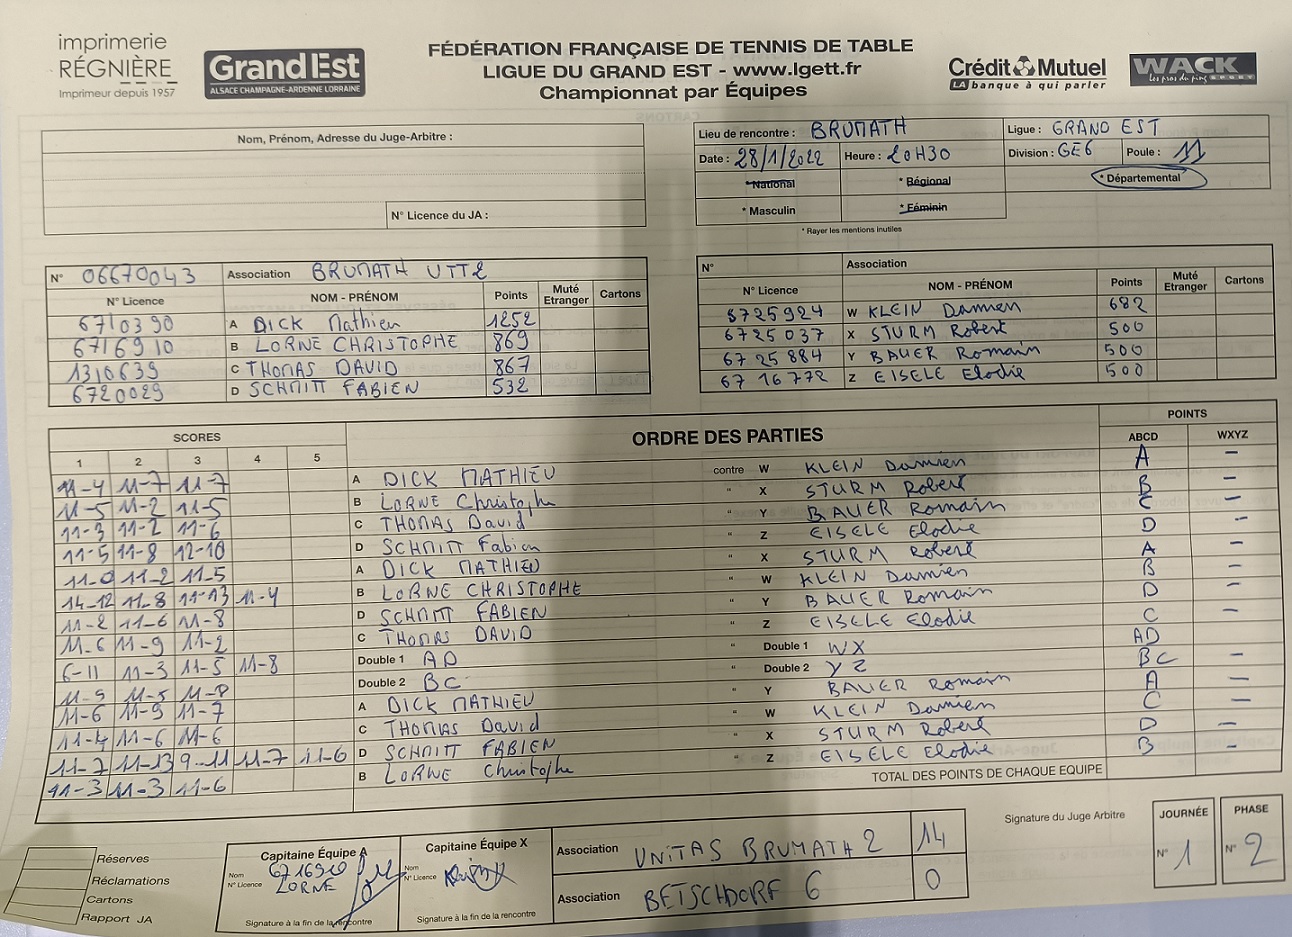 imprimerie
RÉGNIÈRE
Imprimeur depuis 1957
Grand Est
ALSACE CHAMPAGNE-ARDENNE LORRAINE
FÉDÉRATION FRANÇAISE DE TENNIS DE TABLE
LIGUE DU GRAND EST - www.lgett.fr
Championnat par Équipes
Crédit Mutuel
LA banque à qui parler
WACK
Les pros du ping SPORT
Nom, Prénom, Adresse du Juge-Arbitre :
N° Licence du JA :
Lieu de rencontre : BRUMATH Ligue : GRAND EST
Date : 28/1/2022 Heure : 20H30 Division : GE6 Poule : 11
* National * Régional * Départemental
* Masculin * Féminin
* Rayer les mentions inutiles
N° 06670043 Association BRUMATH UTT2
N° Licence NOM - PRÉNOM Points Muté Etranger Cartons
6710390 A DICK Mathieu 1252
6716910 B LORNE CHRISTOPHE 869
1310639 C THOMAS DAVID 867
6720029 D SCHMITT FABIEN 532
N° Association
N° Licence NOM - PRÉNOM Points Muté Etranger Cartons
6725924 W KLEIN Damien 682
6725037 X STURM Robert 500
6725884 Y BAUER Romain 500
6716772 Z EISELE Elodie 500
SCORES ORDRE DES PARTIES POINTS
1 2 3 4 5 ABCD WXYZ
11-4 11-7 11-7 A DICK MATHIEU contre W KLEIN Damien A -
11-5 11-2 11-5 B LORNE Christophe " X STURM Robert B -
11-3 11-2 11-6 C THOMAS David " Y BAUER Romain C -
11-5 11-8 12-10 D SCHMITT Fabien " Z EISELE Elodie D -
11-0 11-2 11-5 A DICK MATHIEU " X STURM Robert A -
14-12 11-8 11-13 11-4 B LORNE CHRISTOPHE " W KLEIN Damien B -
11-2 11-6 11-8 D SCHMITT FABIEN " Y BAUER Romain D -
11-6 11-9 11-2 C THOMAS DAVID " Z EISELE Elodie C -
6-11 11-3 11-5 11-8 Double 1 AD " Double 1 WX AD
11-9 11-5 11-8 Double 2 BC " Double 2 YZ BC -
11-6 11-9 11-7 A DICK MATHIEU " Y BAUER Romain A -
11-4 11-6 11-6 C THOMAS David " W KLEIN Damien C -
11-7 11-13 9-11 11-7 11-6 D SCHMITT FABIEN " X STURM Robert D -
11-3 11-3 11-6 B LORNE Christophe " Z EISELE Elodie B -
TOTAL DES POINTS DE CHAQUE EQUIPE
Réserves
Réclamations
Cartons
Rapport JA
Capitaine Équipe A
Nom
N° Licence
6716910
LORNE
Signature à la fin de la rencontre
Capitaine Équipe X
Nom
N° Licence
Signature à la fin de la rencontre
Association UNITAS BRUMATH 2 14
Association BETSCHDORF 6 0
Signature du Juge Arbitre
JOURNÉE
N° 1
PHASE
N° 2